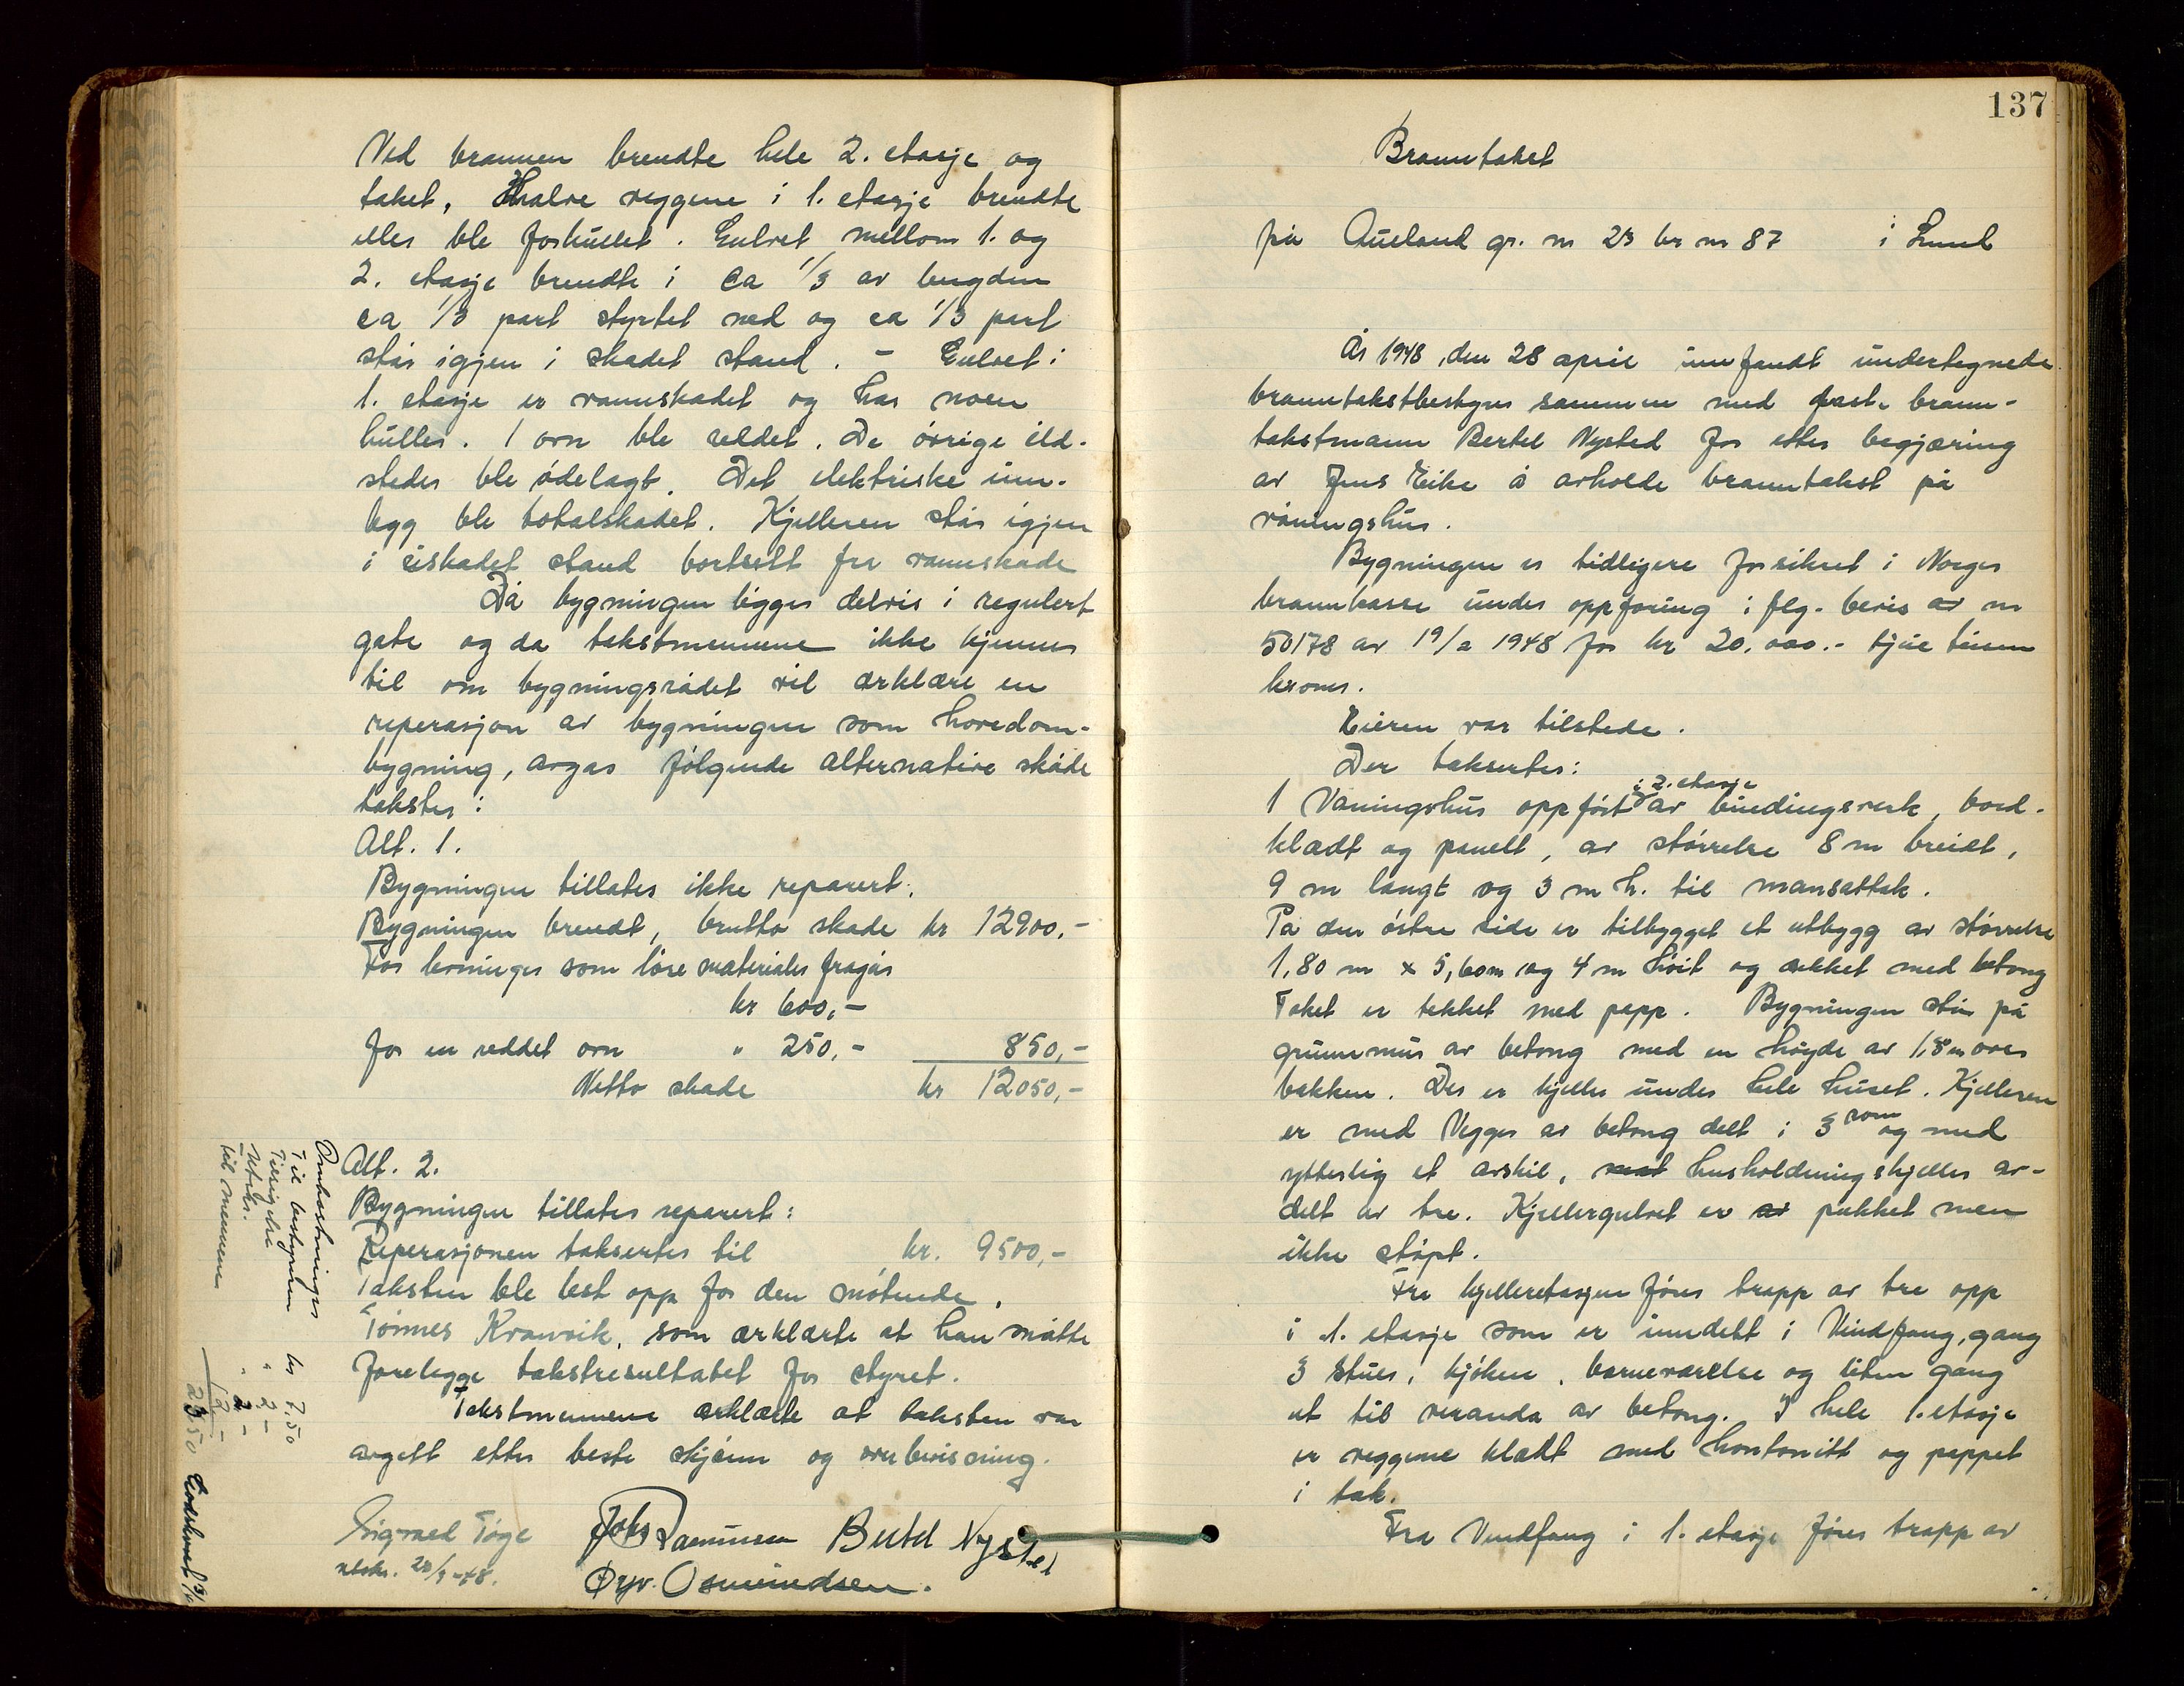 Ved brannen brendte hele 2. etasje og
taket, Halve veggene i 1. etasje brendte
eller ble forkullet. Gulvet mellom 1. og
2. etasje brendte i ca 1/3 av lengden
ca 1/3 part styrtet ned og ca 1/3 part
står igjen i skadet stand. - Gulvet i
1. etasje er vannskadet og har noen
huller. 1 ovn ble reddet. De övrige ild-
steder ble ödelagt. Det elektriske inn-
legg ble totalskadet. Kjelleren står igjen
i uskadet stand bortsett fra vannskade
Då bygningen ligger delvis i regulert
gate og da takstmennene ikke kjenner
til om bygningsrådet vil erklære en
reperasjon av bygningen som hovedom-
bygning, avgas fölgende alternative skade
takster:
Alt. 1.
Bygningen tillates ikke reparert.
Bygningen brendt, brutto skade kr 12900,-
For levninger som löse materialer fragår
kr 600,-
for en reddet ovn " 250,- 850,-
Netto skade kr 12050,-
Alt. 2.
Bygningen tillates reparert:
Reperasjonen taksertes til kr. 9500,-
Taksten ble lest opp for den mötende,
Tönnes Kranvik, som erklærte at han måtte
forelegge takstresultatet for styret.
Takstmennene erklærte at taksten var
avgitt etter beste skjönn og overbevisning.
Johs Rasmussen Bertel Nysted
utskr. 20/9-48.
Øyv. Osmundsen.
Omkostninger
Til bestyreren kr 7,50
Tilsigelse " 2-
Utskr. " 2-
til mennene 12-
23,50 Godskrevet
137
Branntakst
på Aueland gr. nr 23 br nr 87 i Lund
År 1948, den 28 april innfandt undertegnede
branntakstbestyrer sammen med fast. brann-
takstmann Bertel Nysted for etter begjæring
av Jens Eike å avholde branntakst på
våningshus.
Bygningen er tidligere forsikret i Norges
brannkasse under oppföring i flg. bevis av nr
50178 av 19/2 1948 for kr 20.000.- tjue tusen
kroner.
Eieren var tilstede.
Der taksertes:
1 Våningshus oppfört i 2. etasje av bindingsverk, bord-
klædt og panelt, av störrelse 8 m breidt,
9 m langt og 3 m h. til mansattak.
På den östre side er tilbygget et utbygg av störrelse
1,80 m x 5,60 m og 4 m höit og dekket med betong
Taket er tekket med papp. Bygningen står på
grunnmur av betong med en höyde av 1,8 m over
bakken. Der er kjeller under hele huset. Kjelleren
er med Vegger av betong delt i 3 rom og med
ytterlig et avskil, mat husholdningskjeller av-
delt av tre. Kjellergulvet er av pukket men
ikke stöpt.
Fra kjelleretasjen föres trapp av tre opp
i 1. etasje som er inndelt i Vindfang, gang
3 stuer, kjöken, barneværelse og liten gang
ut til veranda av betong. I hele 1. etasje
er veggene klædt med huntonitt og pappet
i tak.
Fra Vindfang i 1. etasje föres trapp av